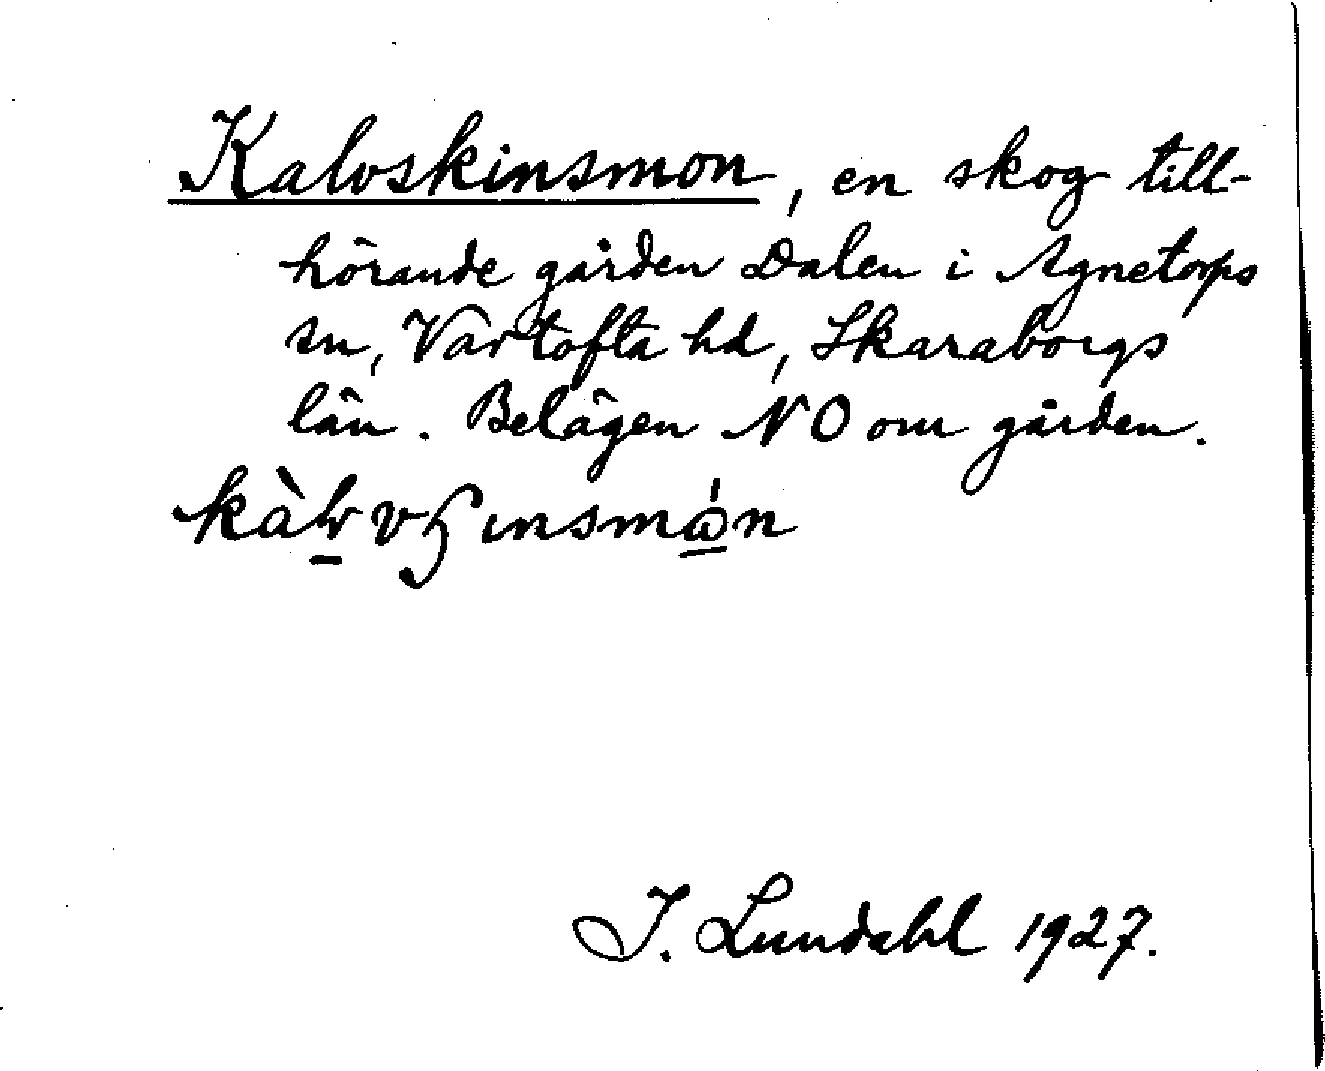 Kalvskinsmon, en skog till-
hörande gården Dalen i Agnetorps
sn, Vartofta hd, Skaraborgs
län. Belägen NO om gården.
I. Lundahl 1927.